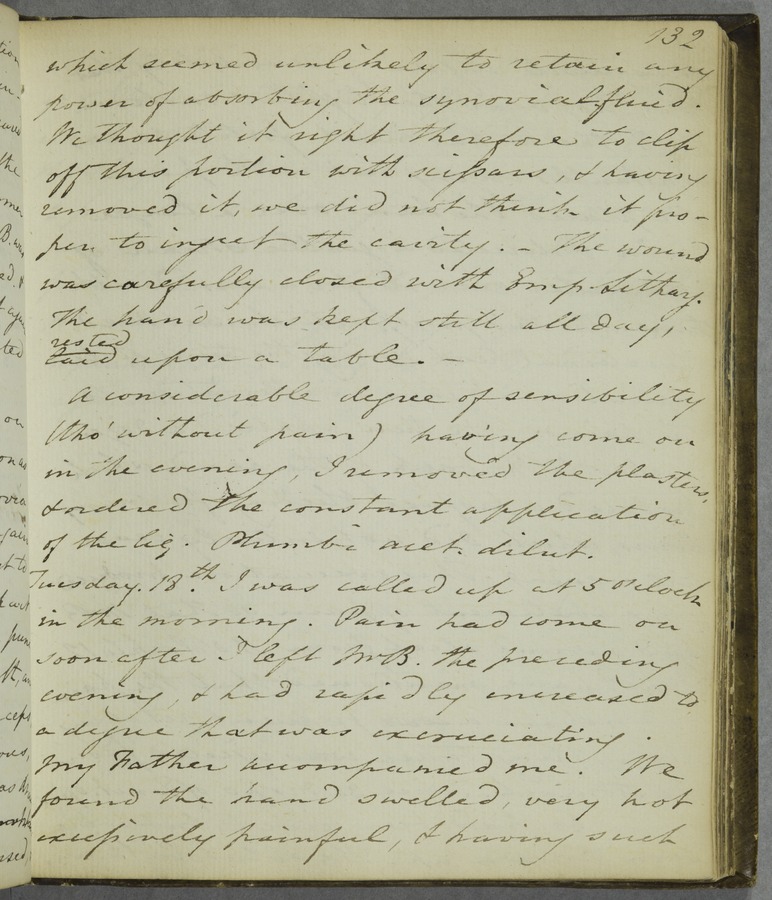 132
which seemed unlikely to retain any
power of absorbing the synovial fluid.
We thought it right therefore to clip
off this portion with scissars, & having
removed it, we did not think it pro-
per to inject the cavity. – The wound
was carefully closed with Emp. Lithary.
The hand was kept still all day,
rested
laid upon a table. –
A considerable degree of sensibility
(tho' without pain) having come on
in the evening, I removed the plasters,
& ordered the constant application
of the liq. Plumbi acet. dilut.
Tuesday. 18.th I was called up at 5 o'clock
in the morning. Pain had come on
soon after I left Mr B. the preceding
evening, & had rapidly increased to
a degree that was excruciating.
My Father accompanied me. We
found the hand swelled, very hot
excessively painful, & having such